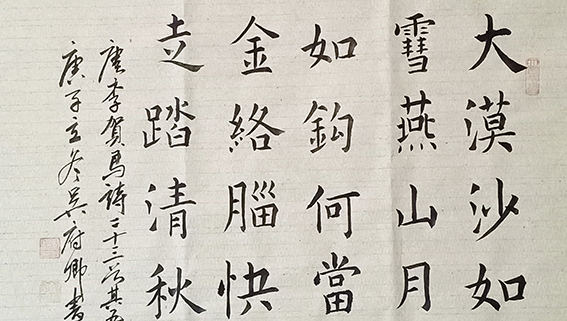 大漠沙如
雪燕山月
如鈎何當
金絡腦快
走踏清秋
唐李賀馬詩二十三首其五
庚子立冬吳府卿書